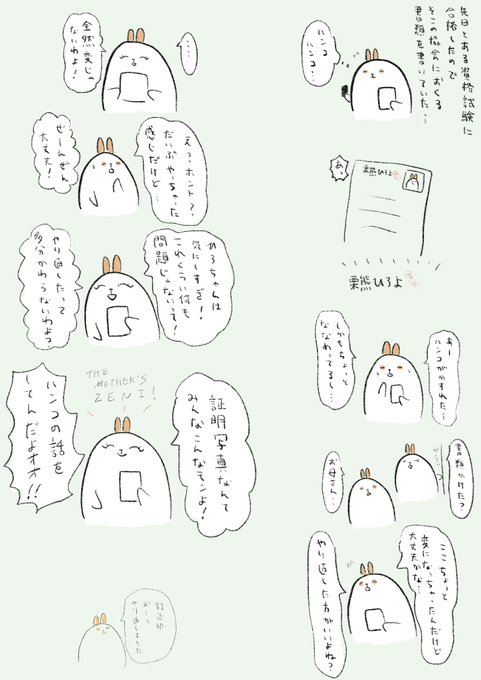 先日とある資格試験に
合格したので
そこの協会におくる
書類を書いていた…
ハンコ
ハンコ…
あっ
栗熊ひろよ
栗熊ひろよ
あー
ハンコがかすれた…
しかもちょっと
ななめってるし…
書類かけた?
ガラッ
お母さん…
ここちょっと
変になっちゃったんだけど
大丈夫かな…
やり直した方がいいよね?
……
全然変じゃ
ないわよ!
え?ホント?
だいぶやっちゃった
感じだけど…
ぜーんぜん
大丈夫!
ひろちゃんは
気にしすぎ!!
これくらい何も
問題じゃないって!
やり直したって
多分かわらないわよっ
THE
MOTHER'S
ZENI!
証明写真なんて
みんなこんなモンよ!
ハンコの話を
してんだよオオ!!
訂正印
おして
やり直しました